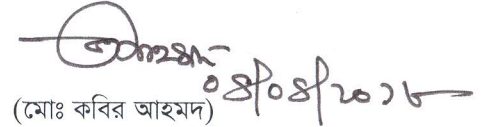 ০৪/০৪/২০১৮
(মোঃ কবির আহমদ)